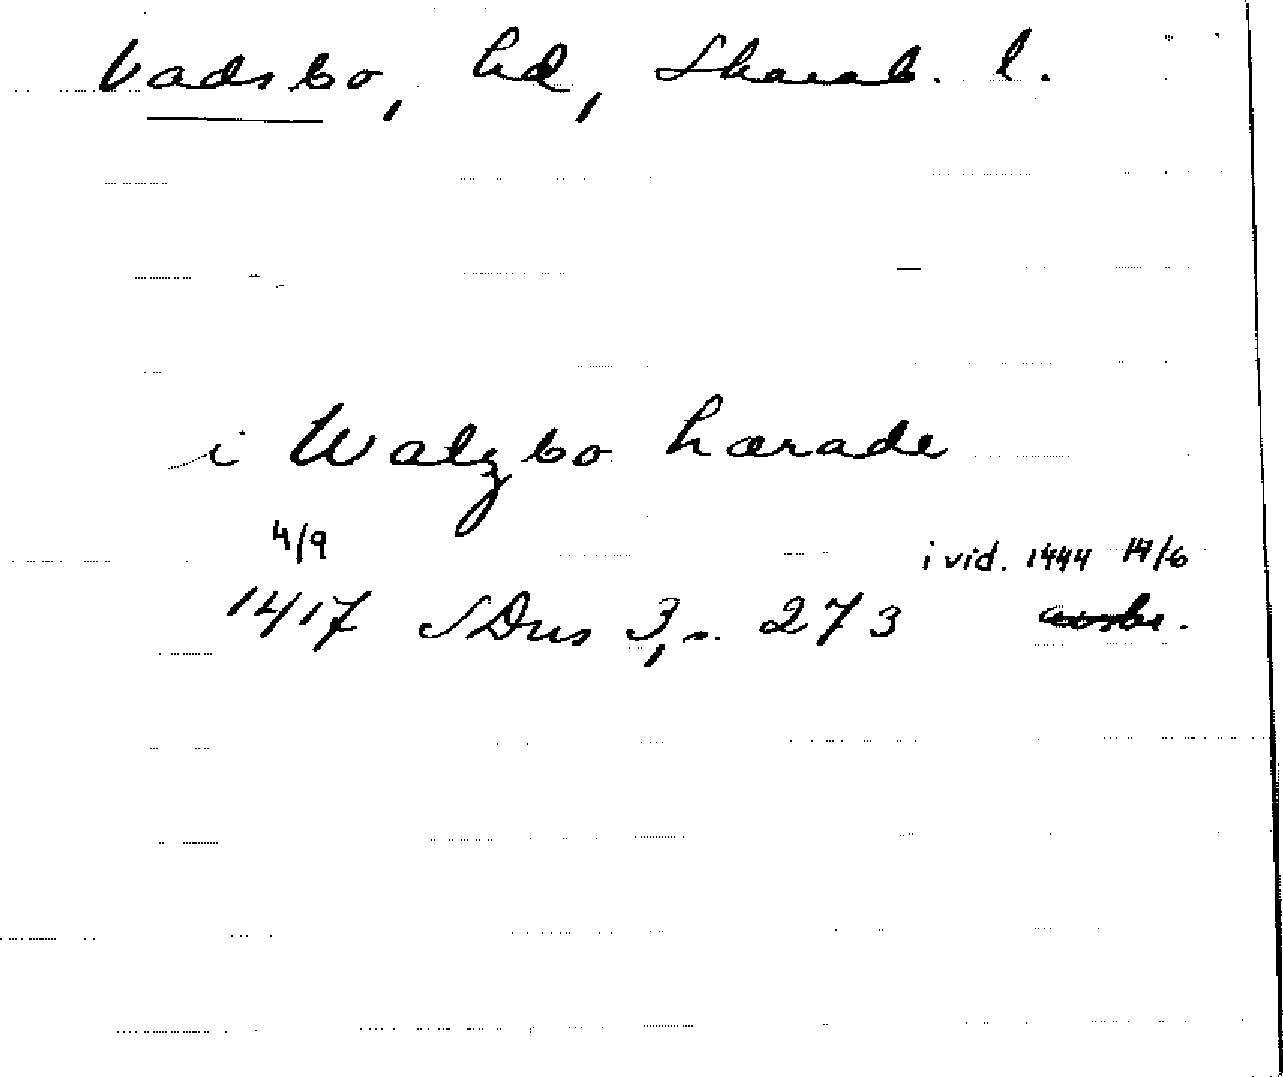 Vadsbo, hd, Skarab. l.
i Walzbo hærade
4/9 i vid. 1444 14/6
1417 SDns 3, s. 273